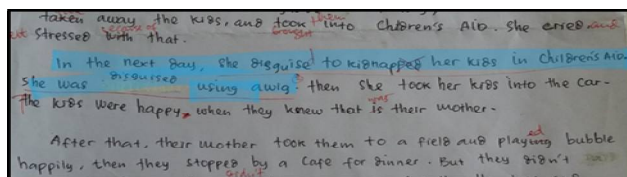 taken away the kids, and took them into Children's Aid. She cried, and
brought
stressed because of with that.
In the next day, she disguised to kidnapped her kids in Children's Aid.
she was disguised using a wig. then she took her kids into the car.
the kids were happy, when they knew that is was their mother.
After that, their mother took them to a field and playing ed bubble
happily, then they stopped by a cafe for dinner. But they didn't
didn't